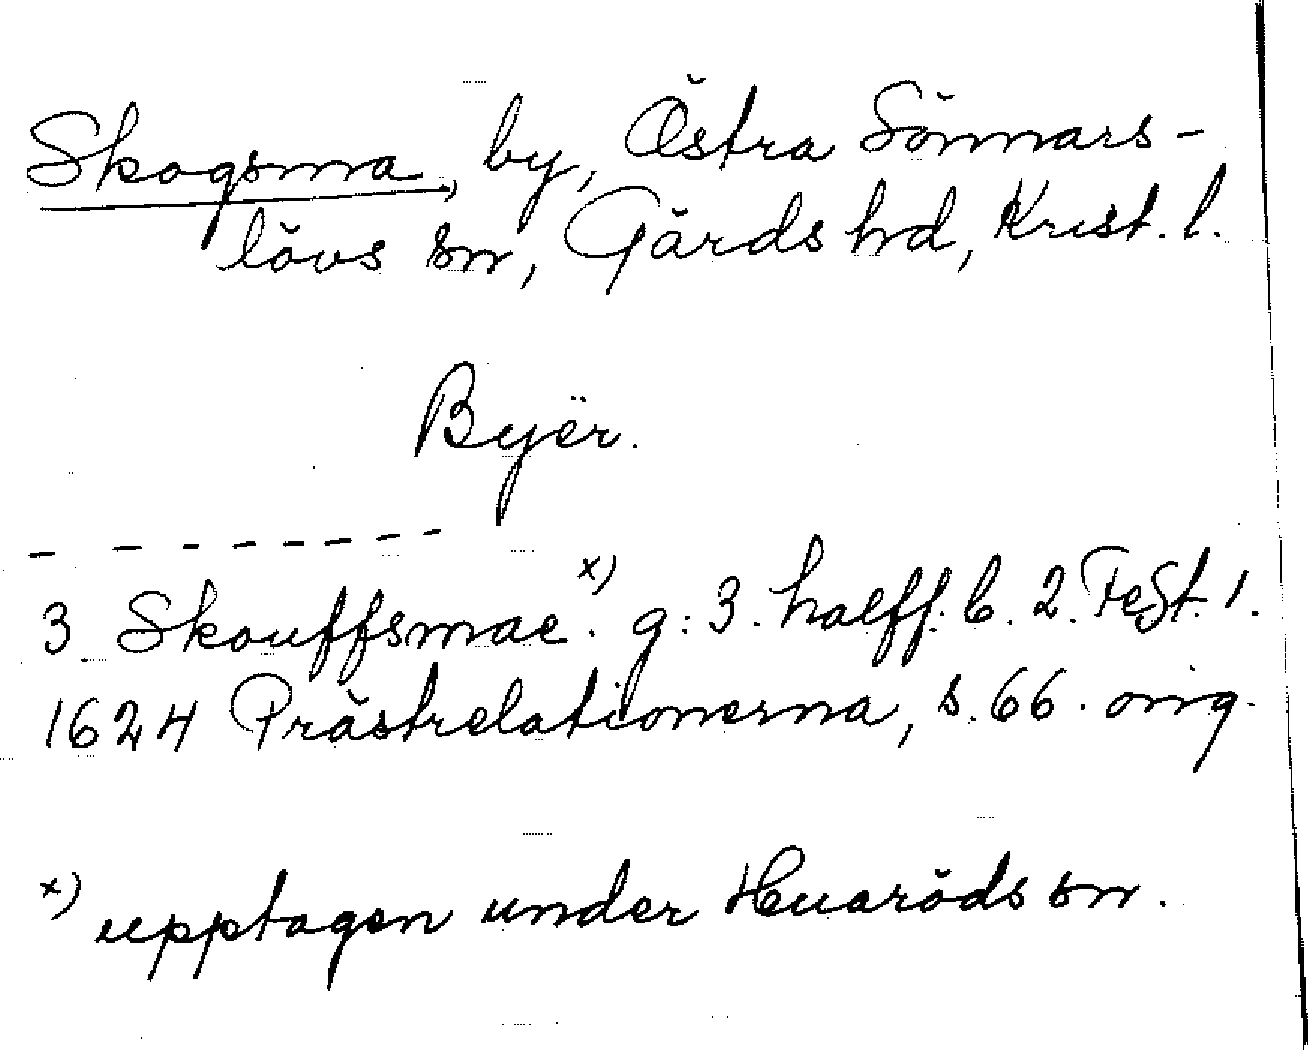 Skogsma, by, Östra Sönnars-
lövs sn, Gärds hd, Krist. l.
Byër.
– – – – – – – –
3 Skouffsmae.x) g: 3. halff. b. 2. FeSt. 1.
1624 Prästrelationerna, s. 66. orig.
x) upptagen under Huaröds sn.